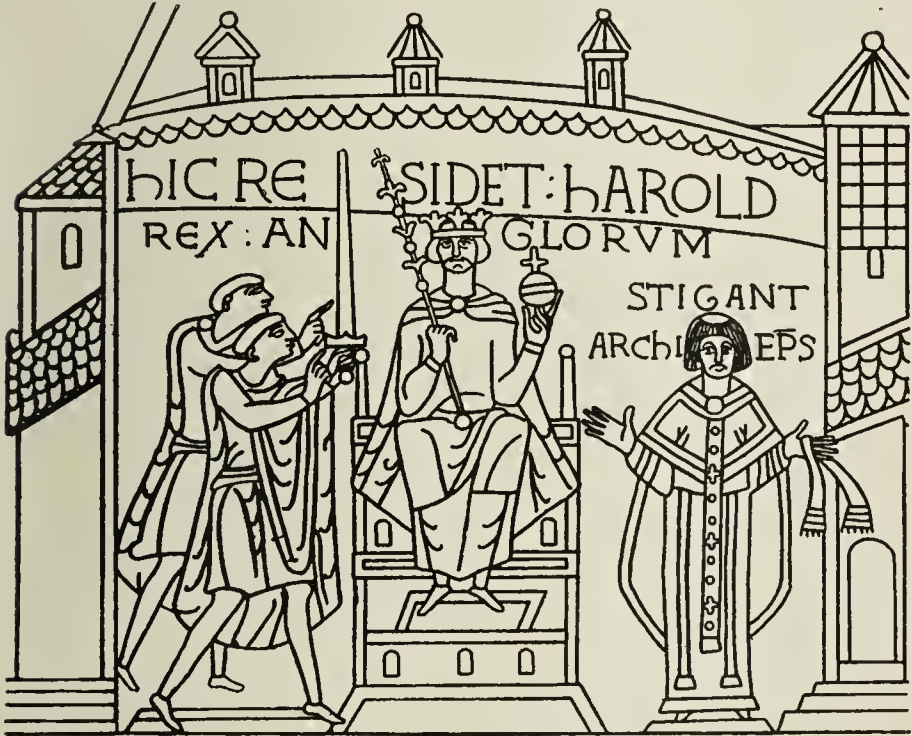 hIC RE SIDET : hAROLD
REX : AN GLORVM
STIGANT
ARChI EP̄S